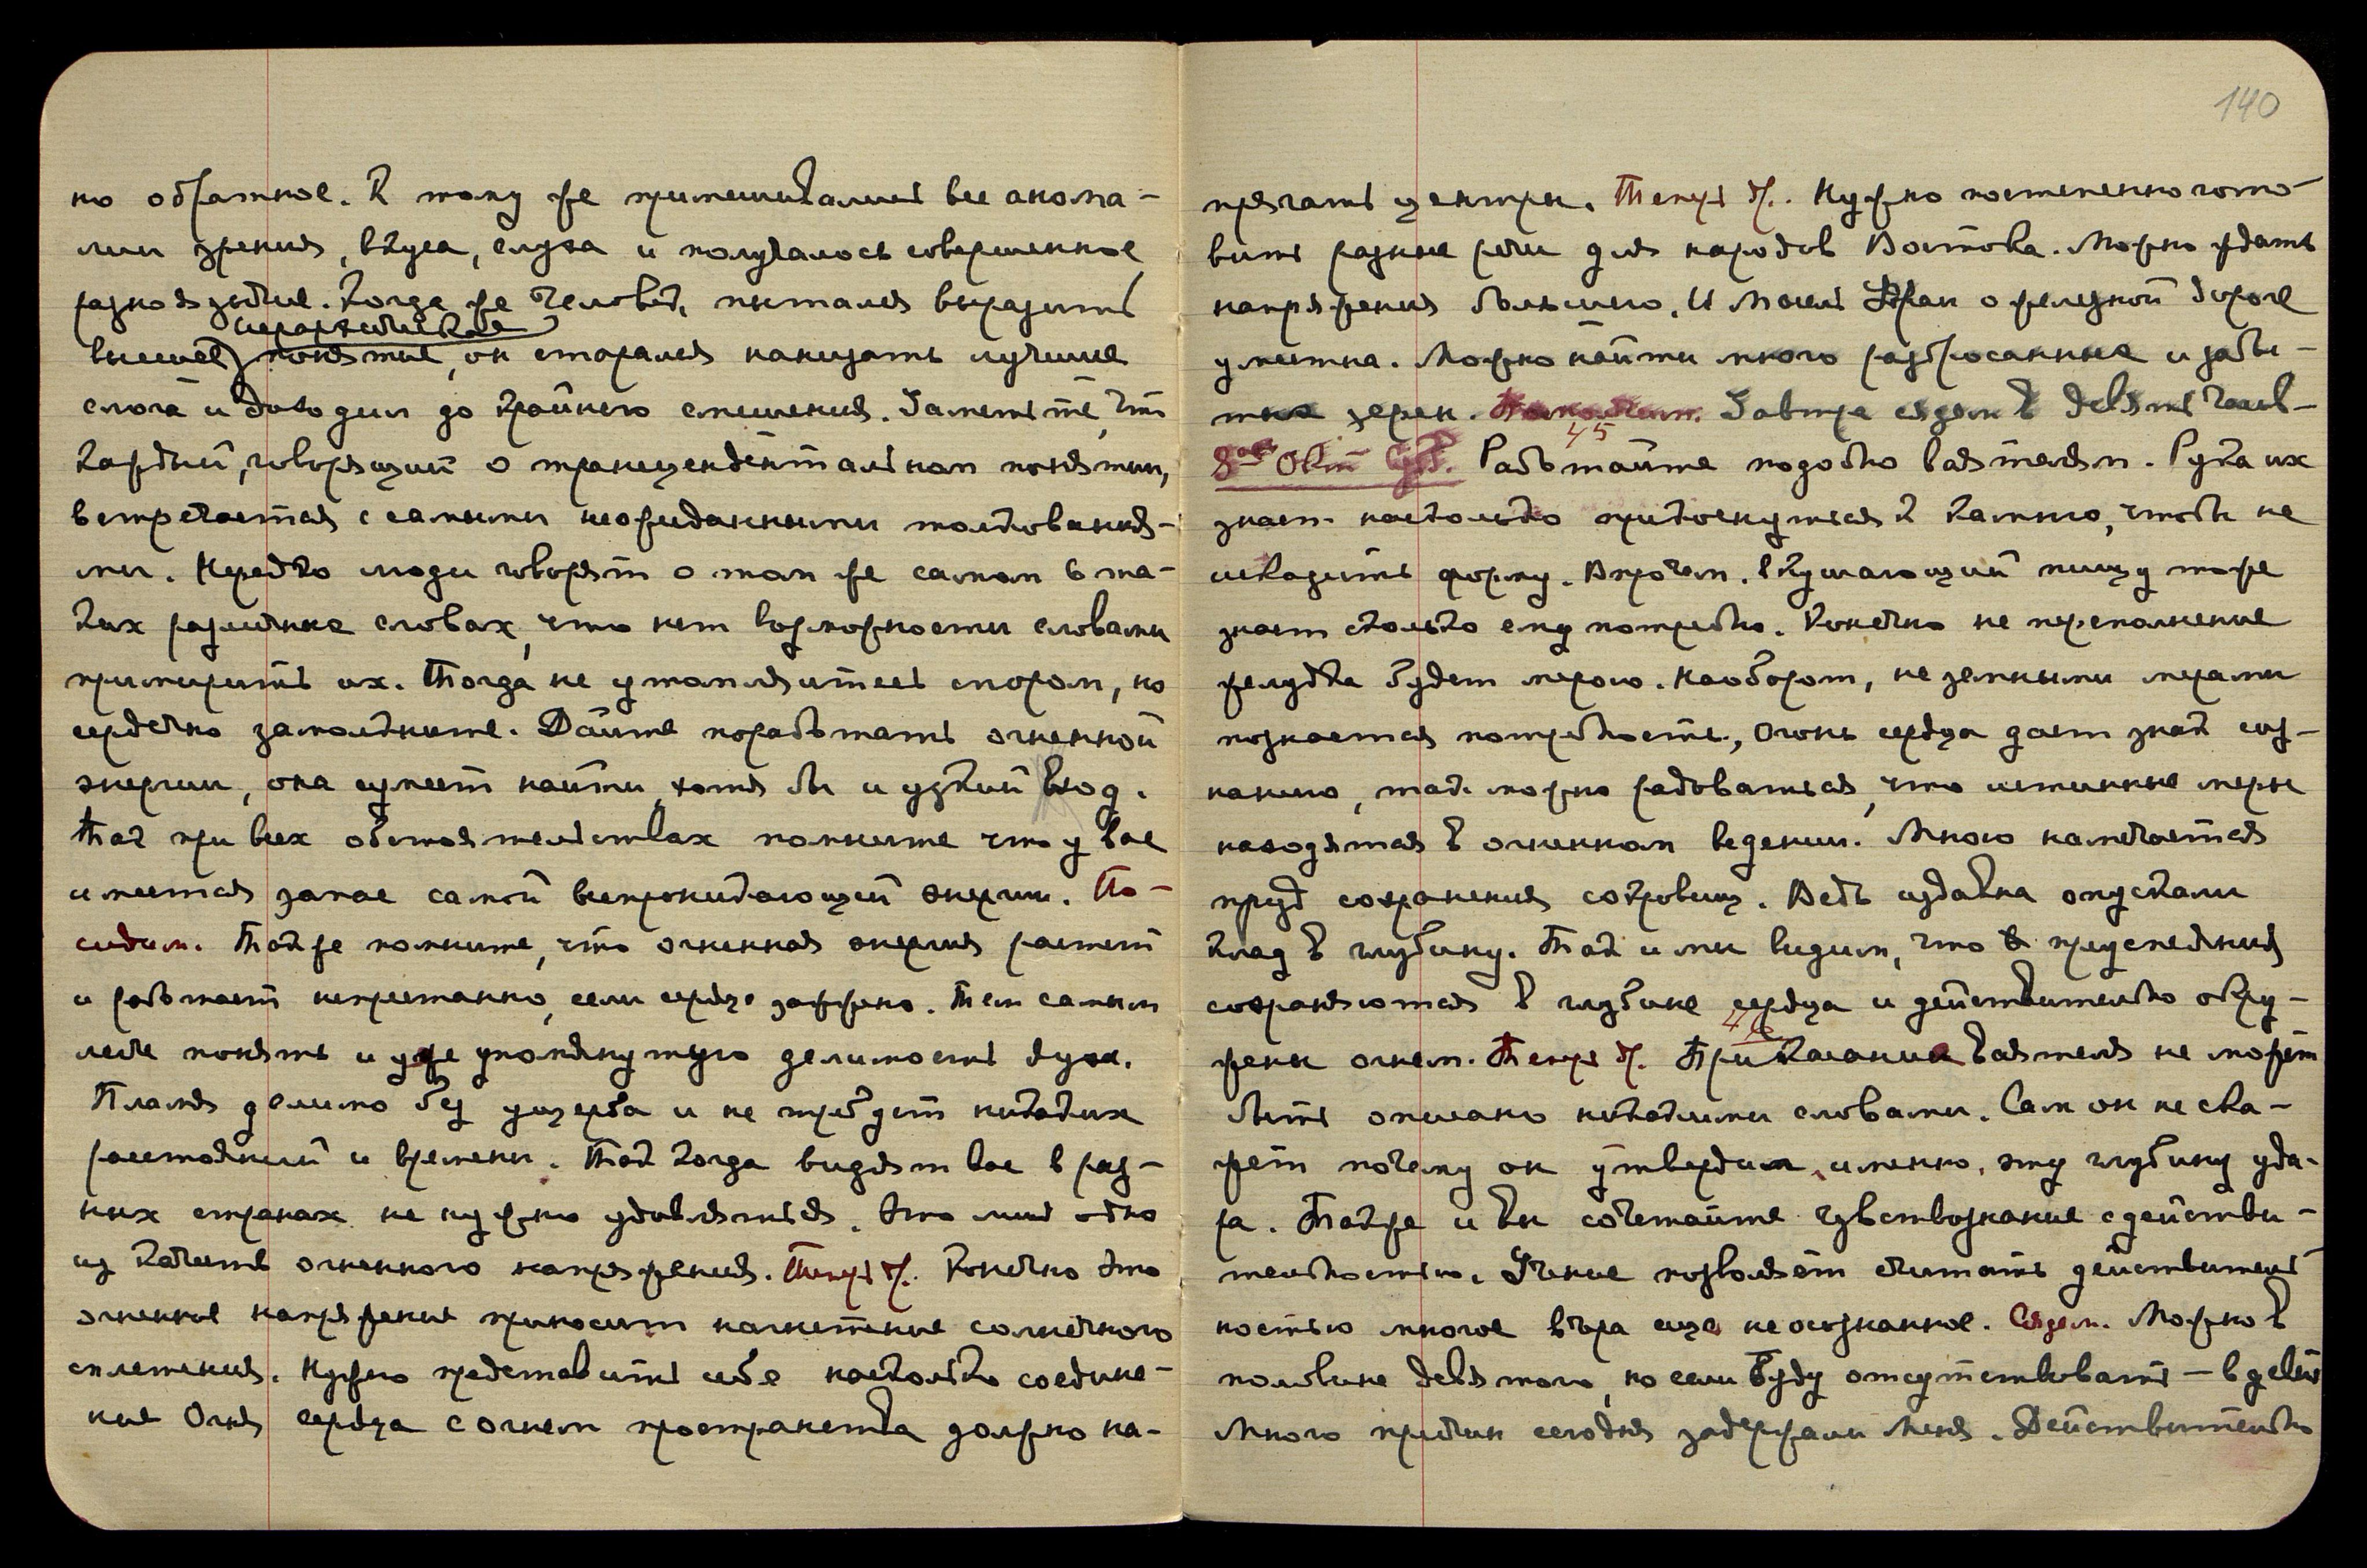 но обратное. К тому же примешивались все анома-
лии зрения, вкуса, слуха и получалось совершенное
разноязычие. Когда же человек пытался выразить
иерархическое
высшее понятие, он старался нанизать лучшие
слога и доходил до крайнего смешения. Заметьте, что
каждый, говорящий о трансцендентальном понятии,
встречается с самыми неожиданными толкования-
ми. Нередко люди говорят о том же самом в та-
ких различных словах, что нет возможности словами
примирить их. Тогда не утомляйтесь спором, но
сердечно замолкните. Дайте поработать огненной
энергии, она сумеет найти хотя бы и узкий вход.
Так при всех обстоятельствах помните что у вас
имеется запас самой всепроникающей энергии. По-
сидим. Также помните, что огненная энергия растет
и работает непрестанно, если сердце зажжено. Тем самым
легче понять и уже упомянутую делимость духа.
Пламя делимо без ущерба и не требует никаких
расстояний и времени. Так когда видят вас в раз-
ных странах не нужно удивляться. Это лишь одно
из качеств огненного напряжения. Теперь др. Конечно это
огненное напряжение приносит нагнетение солнечного
сплетения. Нужно представить себе насколько соедине-
ние Огня сердца с огнем пространства должно на-
140
прягать центры. Теперь др. Нужно постепенно гото-
вить разные речи для народов Востока. Можно ждать
напряжения большого. И мысль Фран о железной дороге
уместна. Можно найти много разбросанных и забы-
тых зерен. Завтра сядем в девять часов.
45
8ое Окт Суб. Работайте подобно ваятелям. Рука их
знает насколько прикоснуться к камню, чтобы не
исказить форму. Впрочем, вкушающий пищу тоже
знает сколько ему потребно. Конечно не переполнение
желудка будет мерою. Наоборот, не земными мерами
познается потребность, Огонь сердца дает знак соз-
нанию, так можно радоваться, что истинные меры
находятся в огненном ведении. Много намечается
пруд сохранения сокровищ. Ведь издавна опускали
клад в глубину. Так и мы видим, что преуспеяния
сохраняются в глубине сердца и действительно окру-
46
жены огнем. Теперь др. Прикасание ваятеля не может
быть описано никакими словами. Сам он не ска-
жет почему он утвердил, именно, эту глубину уда-
ра. Также и вы сочетайте чувствознание с действи-
тельностью. Учение позволяет считать действитель
ностью многое вчера еще не осознанное. Сядем. Можно в
половине девятого, но если буду отсутствовать — в девять
Много причин сегодня задержали Меня. Действительно